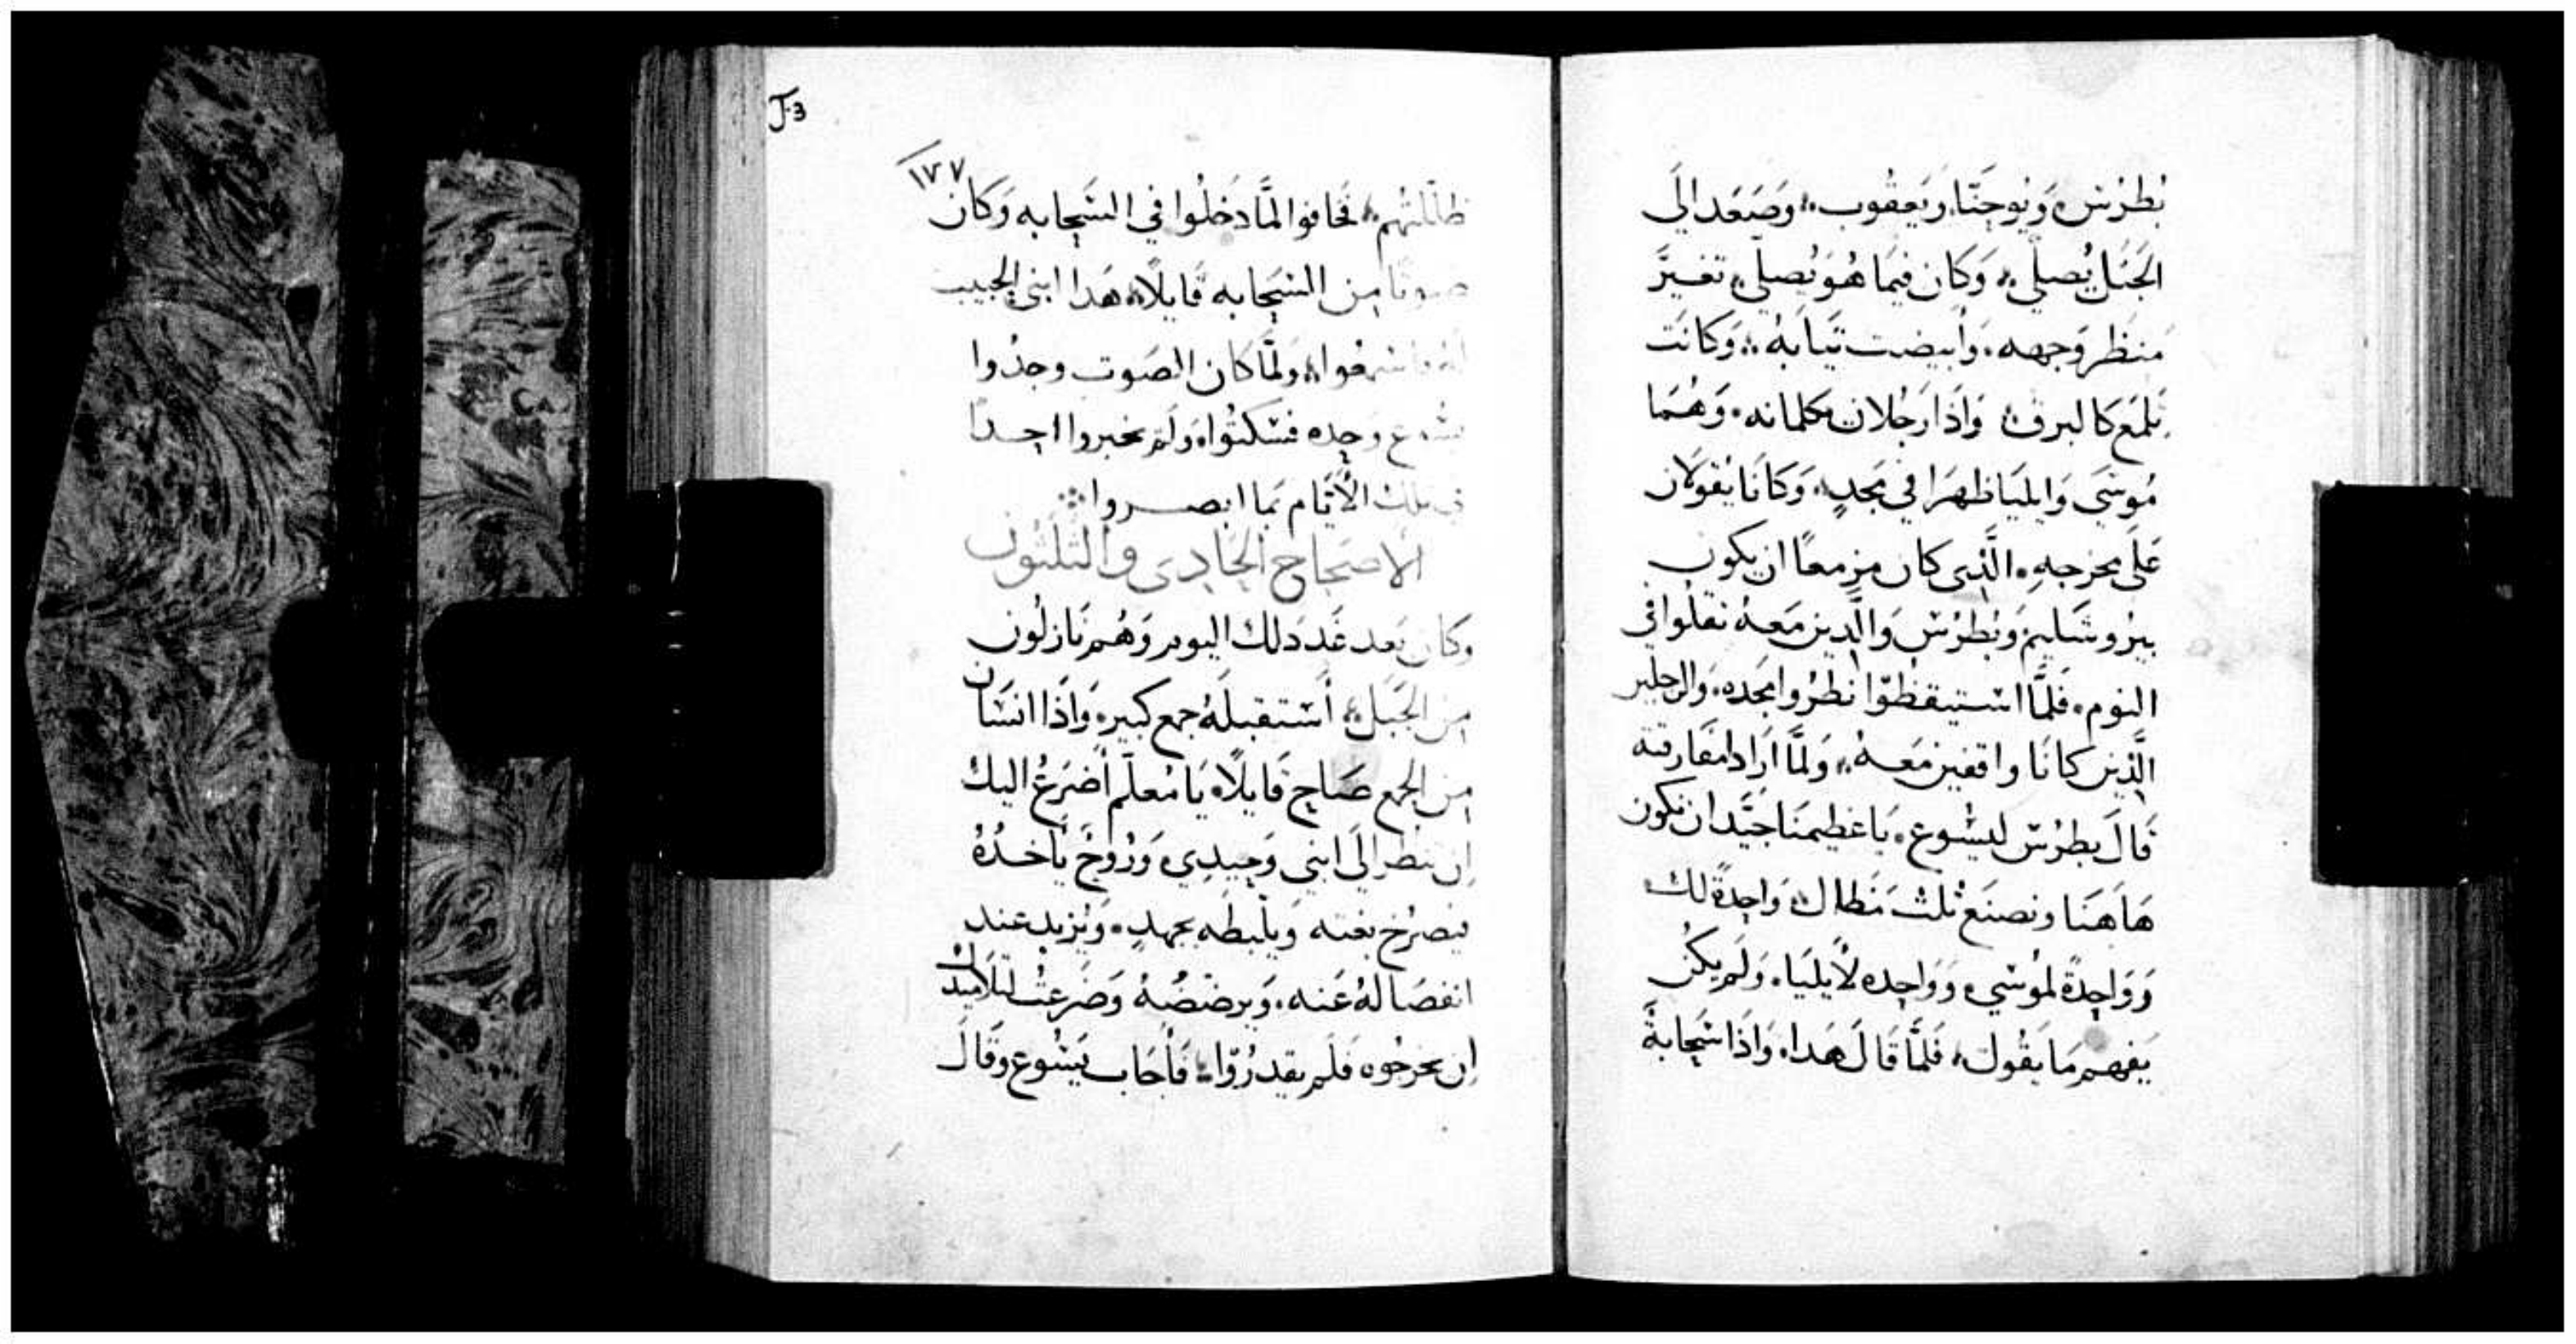 بُطرُس وَيُوحَنَّا وَيَعقُوب وَصَعَد الَى
الجَبَل يُصلّى وَكَان فيمَا هُوَ يُصلّى تغيرَّ
منظر وَجهه وَأبيضت تيَابَهُ وَكانَت
تلمَع كالبرق وَاذَا رَجُلان يكلمانه وَهُمَا
مُوسَى وَايليَا ظهرَا في مَجدٍ وَكَانَا يَقولَان
عَلى مخرجهِ الَّذِى كان مزمعًا ان يكون
بيرُوشَليم وَبُطرُس وَالَّدين مَعهُ ثقلُوا في
النوم فَلمَّا استيقظوا نظرُوا مجده وَالرجلين
الَّذِين كانَا واقفين مَعهُ وَلمَّا أرَادا مفارقته
قَالَ بطرُس ليسُوع يَا عَظيمنَا جَيَّد ان نكون
هَاهنَا ونصنَع ثلث مَظال وَاحِدةً لك
وَوَاحِدةً لمُوسَى وَوَاحِده لأيليَا وَلَم يكُن
يَفهم مَا يَقُول فَلمَّا قَالَ هَدا وَاذَا سَحَابةً
J.3
١٧٧
ظلّلتهُم فَخافوا لمَّا دَخلُوا في السَحَابه وَكَان
صوتًا من السَحَابه قَايلًا هَدا ابنى الحبيب
لهُ فاسمعُوا وَلمَّا كان الصَوت وجدُوا
يسُوع وَحده فسَكتُوا وَلَم يخبروا احدًا
في تلك الأيَّام بمَا ابصروا
الاصحَاح الحَادِى والثلثون
وَكان بَعد غَد دَلك اليوم وَهُم نَازلُون
من الجَبَل أستقبلهُ جمع كبير وَاذَا انسَان
من الجمع صَاح قَايلًا يَا مُعلّم أضرَعُ اليك
ان تنظر الَى ابنى وَحِيدِى وَرُوحٌ يَأخدُهُ
فيصرُخ بغته وَيلبطه بجهدٍ وَيزيد عند
انفصَالهُ عَنه وَيرضضهُ وَضرعتُ لتلاميدك
ان يخرجُوه فَلم يقدرُوا فَأجَاب يَسُوع وَقَالَ